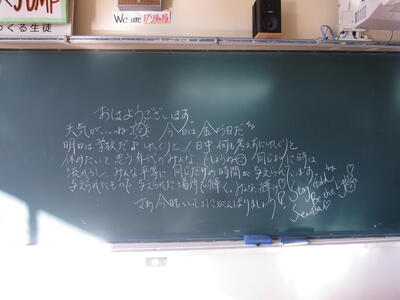 JUMP
くる生徒
We are
おはようございます。
天気がいいね 今日は金よう日だ
明日は学校だよ ゆっくりと1日中 何も考えずにゆっくりと
休みたいと思う年代のみんな。でしょうね 同じように時は
流れるし、みんな平等に同じだけの時間が与えられています。
与えられたもので、与えられた場所で輝く。みんな輝け
さあ今日もいっしょにがんばりましょう
Stay Gold
Be the Light